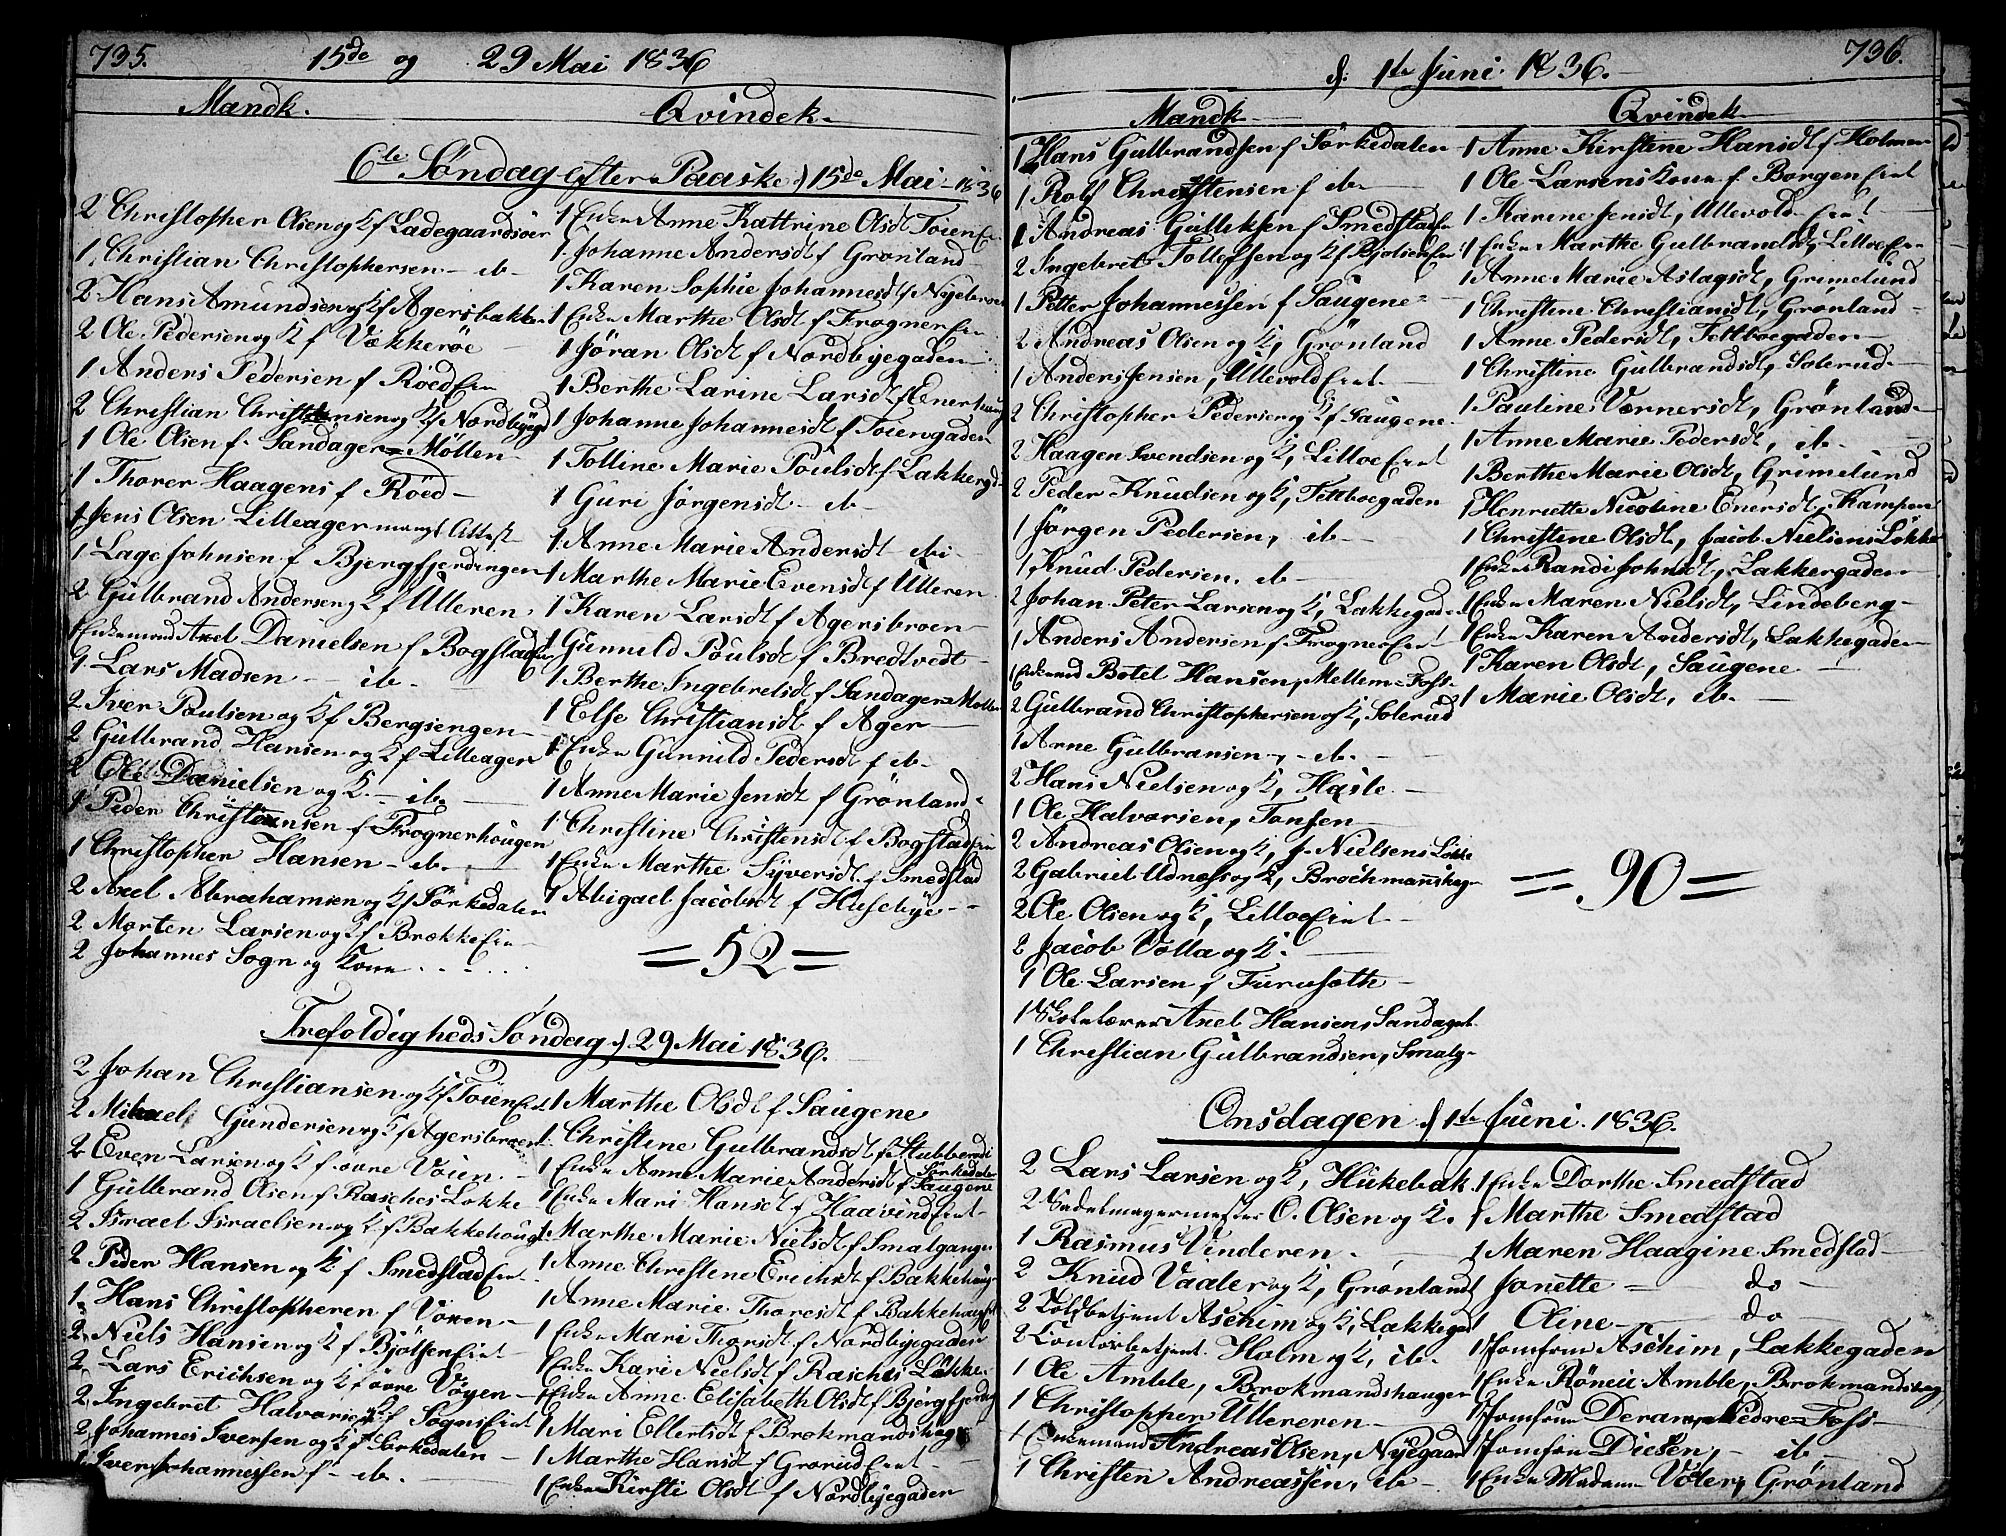 735.
15de og 29 Mai 1836
Mandk.
Qvindek.
6te Søndag efter Paaske d 15de Mai 1836
2 Christopher Olsen og K f Ladegaardsöen
1 Christian Christophersen - ib -
2 Hans Amundsen og K f Agersbakken
2 Ole Pedersen og K f Vækkeröe
1 Anders Pedersen f Röed
2 Christian Christensen og K f Nordbyegd
1 Ole Olsen f Sandager = Möllen
1 Thorer Haagens f Röed -
1 Jens Olsen Lilleager mangl Attest
1 Lage Johnsen f Bjergfjerdingen
2 Gulbrand Andersen og K f Ulleren
1 Enkemand Axel Danielsen f Bogstad
1 Lars Madsen - ib -
2 Iver Poulsen og K f Bergsengen
2 Gulbrand Hansen og K f Lilleager
2 Ole Danielsen og K. - ib.
1 Peder Christiansen f Frognerhougen
1 Christopher Hansen - ib.
2 Axel Abrahamsen og K f Sörkedalen
2 Morten Larsen og K f Brække
2 Johannes Sogn og Kone
1 Enke Anne Kattrine Olsdt Töien
1 Johanne Andersdt f Grønland
1 Karen Sophie Johannesdt f Nyebroen
1 Enke Marthe Olsdt f Frogner
1 Jöran Olsdt f Nordbyegaden
1 Berthe Larine Larsdt f Enerhaug
1 Johanne Johannesdt f Töiengaden
1 Tolline Marie Poulsdt f Lakkergd
1 Guri Jörgensdt - ib -
1 Anne Marie Andersdt - ib -
1 Marthe Marie Evensdt f Ulleren
1 Karen Larsdt f Agersbroen
1 Gunnild Poulsdt f Bredtvedt
1 Berthe Ingebretsdt f Sandager = Möllen
1 Else Christiansdt f Ager
1 Enke Gunnild Pedersdt f ib -
1 Anne Marie Jensdt f Grönland
1 Christine Christensdt f Bogstad
1 Enke Marthe Syversdt f Smedstad
1 Abigael Jacobsdt f Husebye -
= 52 =
Trefoldigheds Söndag d 29 Mai 1836.
2 Johan Christiansen og K f Töien
2 Mikael Gundersen og K f Agersbroen
2 Even Larsen og K f övre Vöien
1 Gulbrand Olsen f Rasches Lökke
2 Israel Israelsen og K f Bakkehoug
2 Peder Hansen og K f Smedstad
1 Hans Christophersen f Vöien
2 Niels Hansen og K f Bjölsen
2 Lars Erichsen og K f övre Vöyen
2 Ingebret Halvorsen f Sogns
2 Johannes Iversen og K f Sörkedalen
1 Iver Johannessen f - ib.
1 Marthe Olsdt f Saugene
1 Christine Gulbrandsdt f Stubberud i Sörkedalen
1 Enke Anne Marie Andersdt f Saugene
1 Enke Mari Hansdt f Haavind
1 Marthe Marie Nielsdt f Smalgangen
1 Anne Christine Erichsdt f Bakkehoug
1 Anne Marie Thoresdt f Bakkehoug
1 Enke Mari Thorsdt f Nordbyegaden
1 Enke Kari Nielsdt f Rasches Lökke
1 Enke Anne Elisabeth Olsdt f Bjergfjerding
1 Mari Ellertsdt f Brokmandshaug
1 Marthe Hansdt f Grorud
1 Enke Kirsti Olsdt f Nordbyegaden
736.
d. 1te Juni 1836.
Mandk
Qvindek
1 Hans Gulbrandsen f Sörkedalen
1 Rolf Christensen f ib -
1 Andreas Gulliksen f Smedstad
2 Ingebret Tollefsen og K f Bjölsen
1 Petter Johannessen f Saugene
2 Andreas Olsen og K, Grönland
1 Anders Jensen, Ullevold
2 Christopher Pedersen og K f Saugene
2 Haagen Svendsen og K, Lilloe
2 Peder Knudsen og K, Fettboegaden
1 Jörgen Pedersen, ib -
1 Knud Pedersen. ib -
2 Johan Peter Larsen og K, Lakkegaden
1 Anders Andersen f Frogner
1 Enkemd Botel Hansen, Mellem = Foss
2 Gulbrand Christophersen og K, Solerud
1 Arne Gulbransen, - ib. -
2 Hans Nielsen og K, Hasle
1 Ole Halvorsen, Tonsen
2 Andreas Olsen og K, J. Nielsens Lökke
2 Gabriel Udnæss og K, Brochmanshaug
2 Ole Olsen og K, Lilloe
2 Jacob Volla og K.
1 Ole Larsen f Furuseth
1 Skolelærer Axel Hansen, Sandaget.
1 Christian Gulbrandsen, Smalg-
1 Anne Kirstine Hansdt f Holmen
1 Ole Larsens Kone f Borgen
1 Karene Jensdt, Ullevold
1 Enke Marthe Gulbrandsdt, Lilloe
1 Anne Marie Aslagsdt, Grimelund
1 Christine Christiansdt, Grønland
1 Anne Pedersdt, Fettboegaden
1 Christine Gulbrandsdt, Solerud
1 Pauline Vernersdt, Grönland
1 Anne Marie Pedersdt, ib -
1 Berthe Marie Olsdt, Grimelund
1 Henriette Nicoline Enersdt, Kampen
1 Christine Olsdt, Jacob Nielsens Lökke
1 Enke Randi Johnsdt, Lakkergaden
1 Enke Maren Nielsdt, Lindeberg
1 Enke Karen Andersdt, Lakkegaden
1 Karen Olsdt, Saugene
1 Marie Olsdt, ib. -
= 90 =
Onsdagen d 1te Juni 1836.
2 Lars Larsen og K, Hukebak
2 Sadelmagermester O. Olsen og K.
1 Rasmus Vinderen.
2 Knud Vaaler og K, Grønland
2 Toldbetjent Aschim og K, Lakkegad
2 Contorbetjent Holm og K, ib.
1 Ole Amble, Brokmandshaugen
1 Christopher Ulleren
1 Enkemand Andreas Olsen, Nyegaard
1 Christen Andreassen, ib -
1 Enke Dorthe Smedstad
1 Marthe Smedstad
1 Maren Haagine Smedstad
1 Janette - do -
1 Oline - do -
1 Jomfrue Aschim, Lakkegaden
1 Enke Röneie Amble, Brokmandshaug
1 Jomfrue Deram, Nedre = Foss
1 Jomfrue Diesen, - ib
1 Enke Madame Völer, Grönland